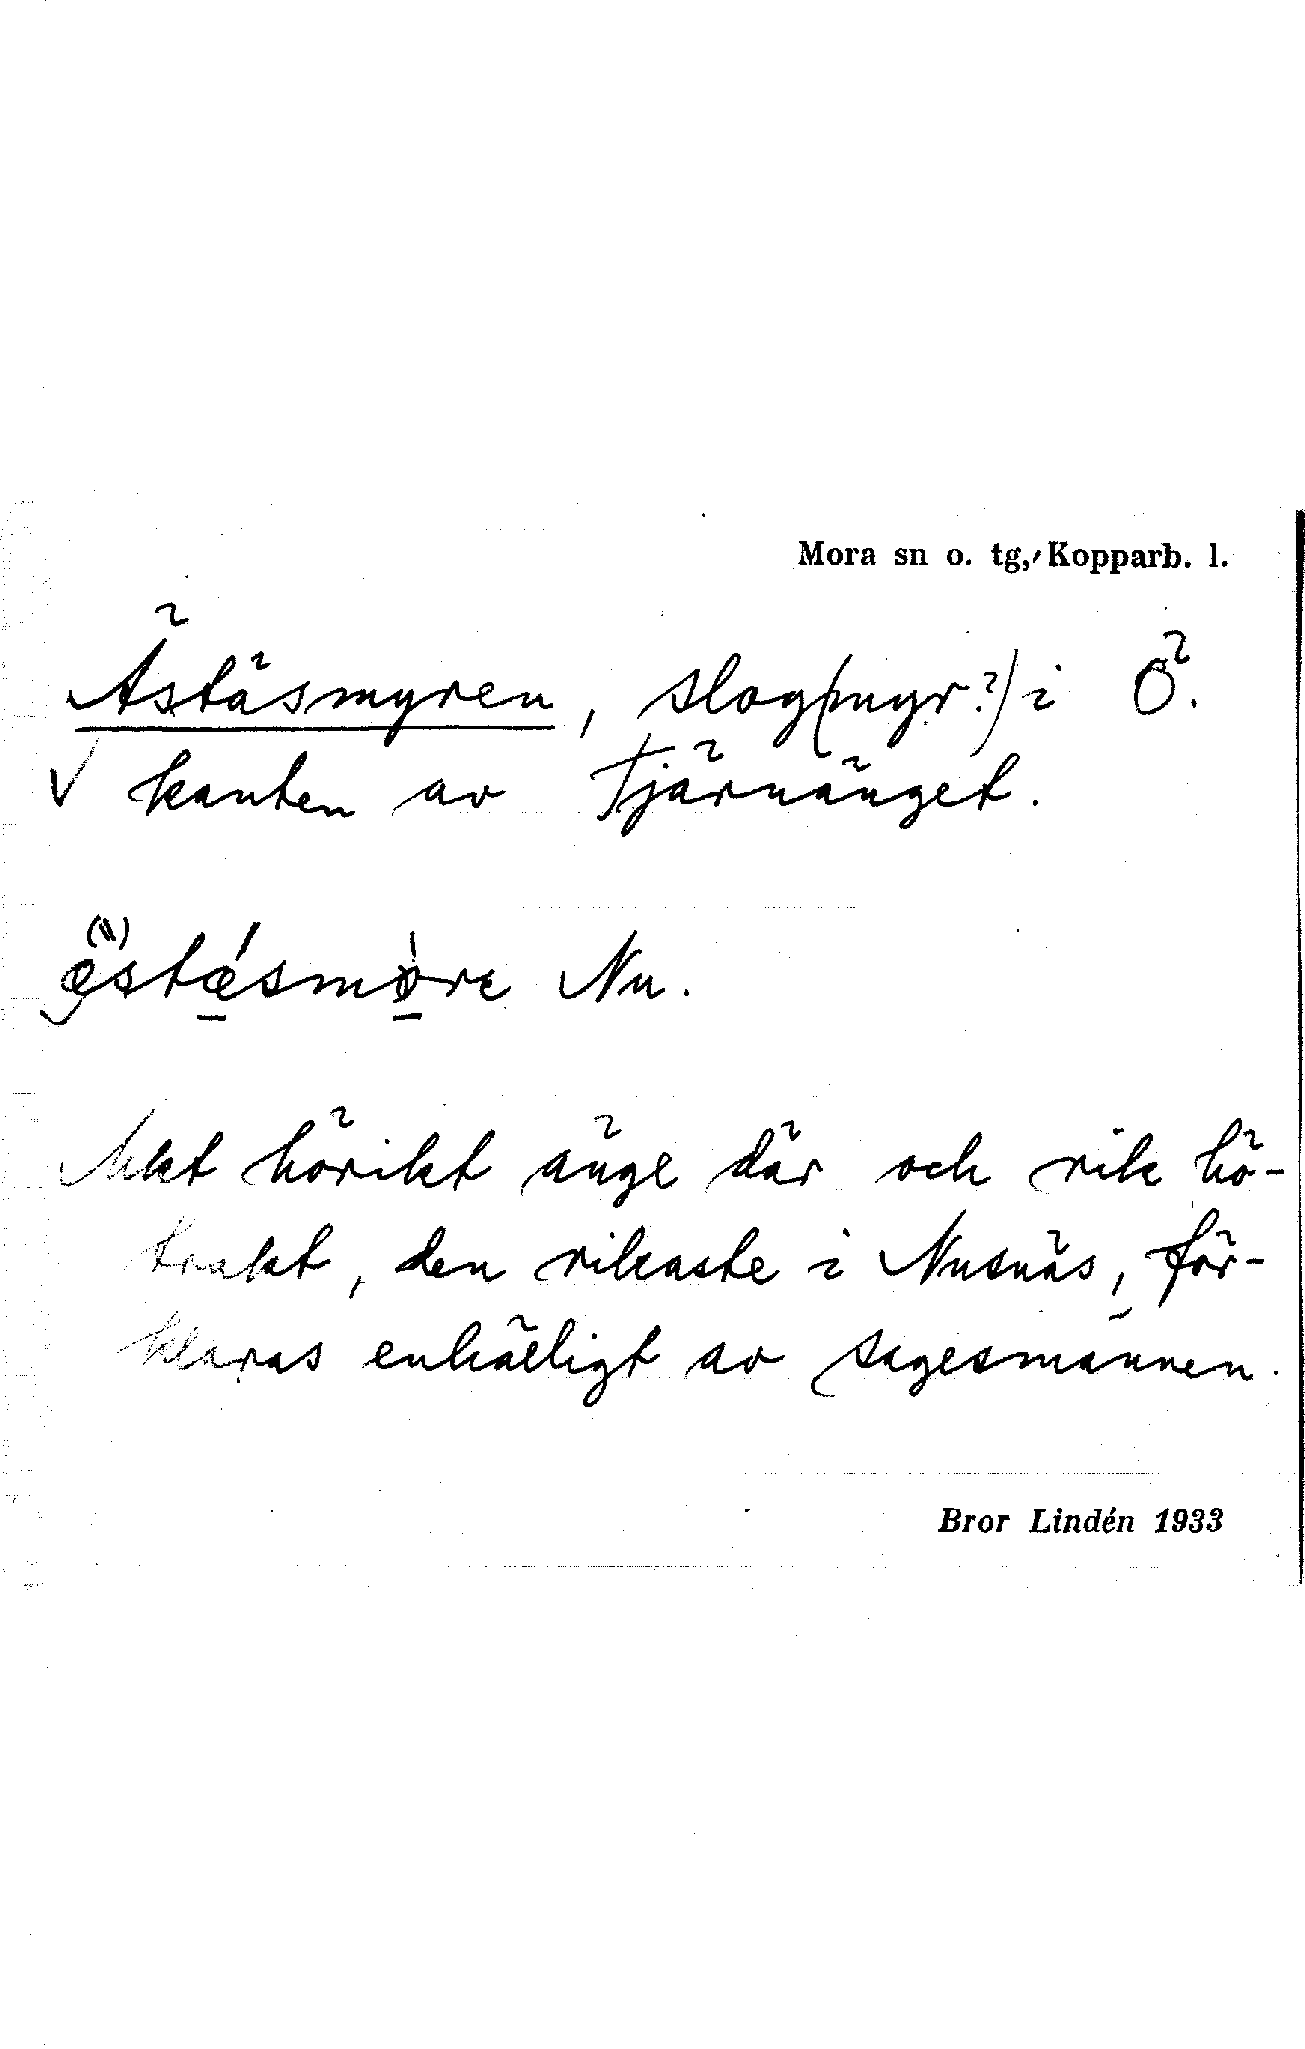 Mora sn o. tg, Kopparb. l.
Ästäsmyren, slog(myr?) i Ö.
kanten av Tjärnänget.
æstǽsmøre Nu.
Mkt hörikt änge där och rik hö-
trakt, den rikaste i Nusnäs, för-
klaras enhälligt av sagesmännen.
Bror Lindén 1933